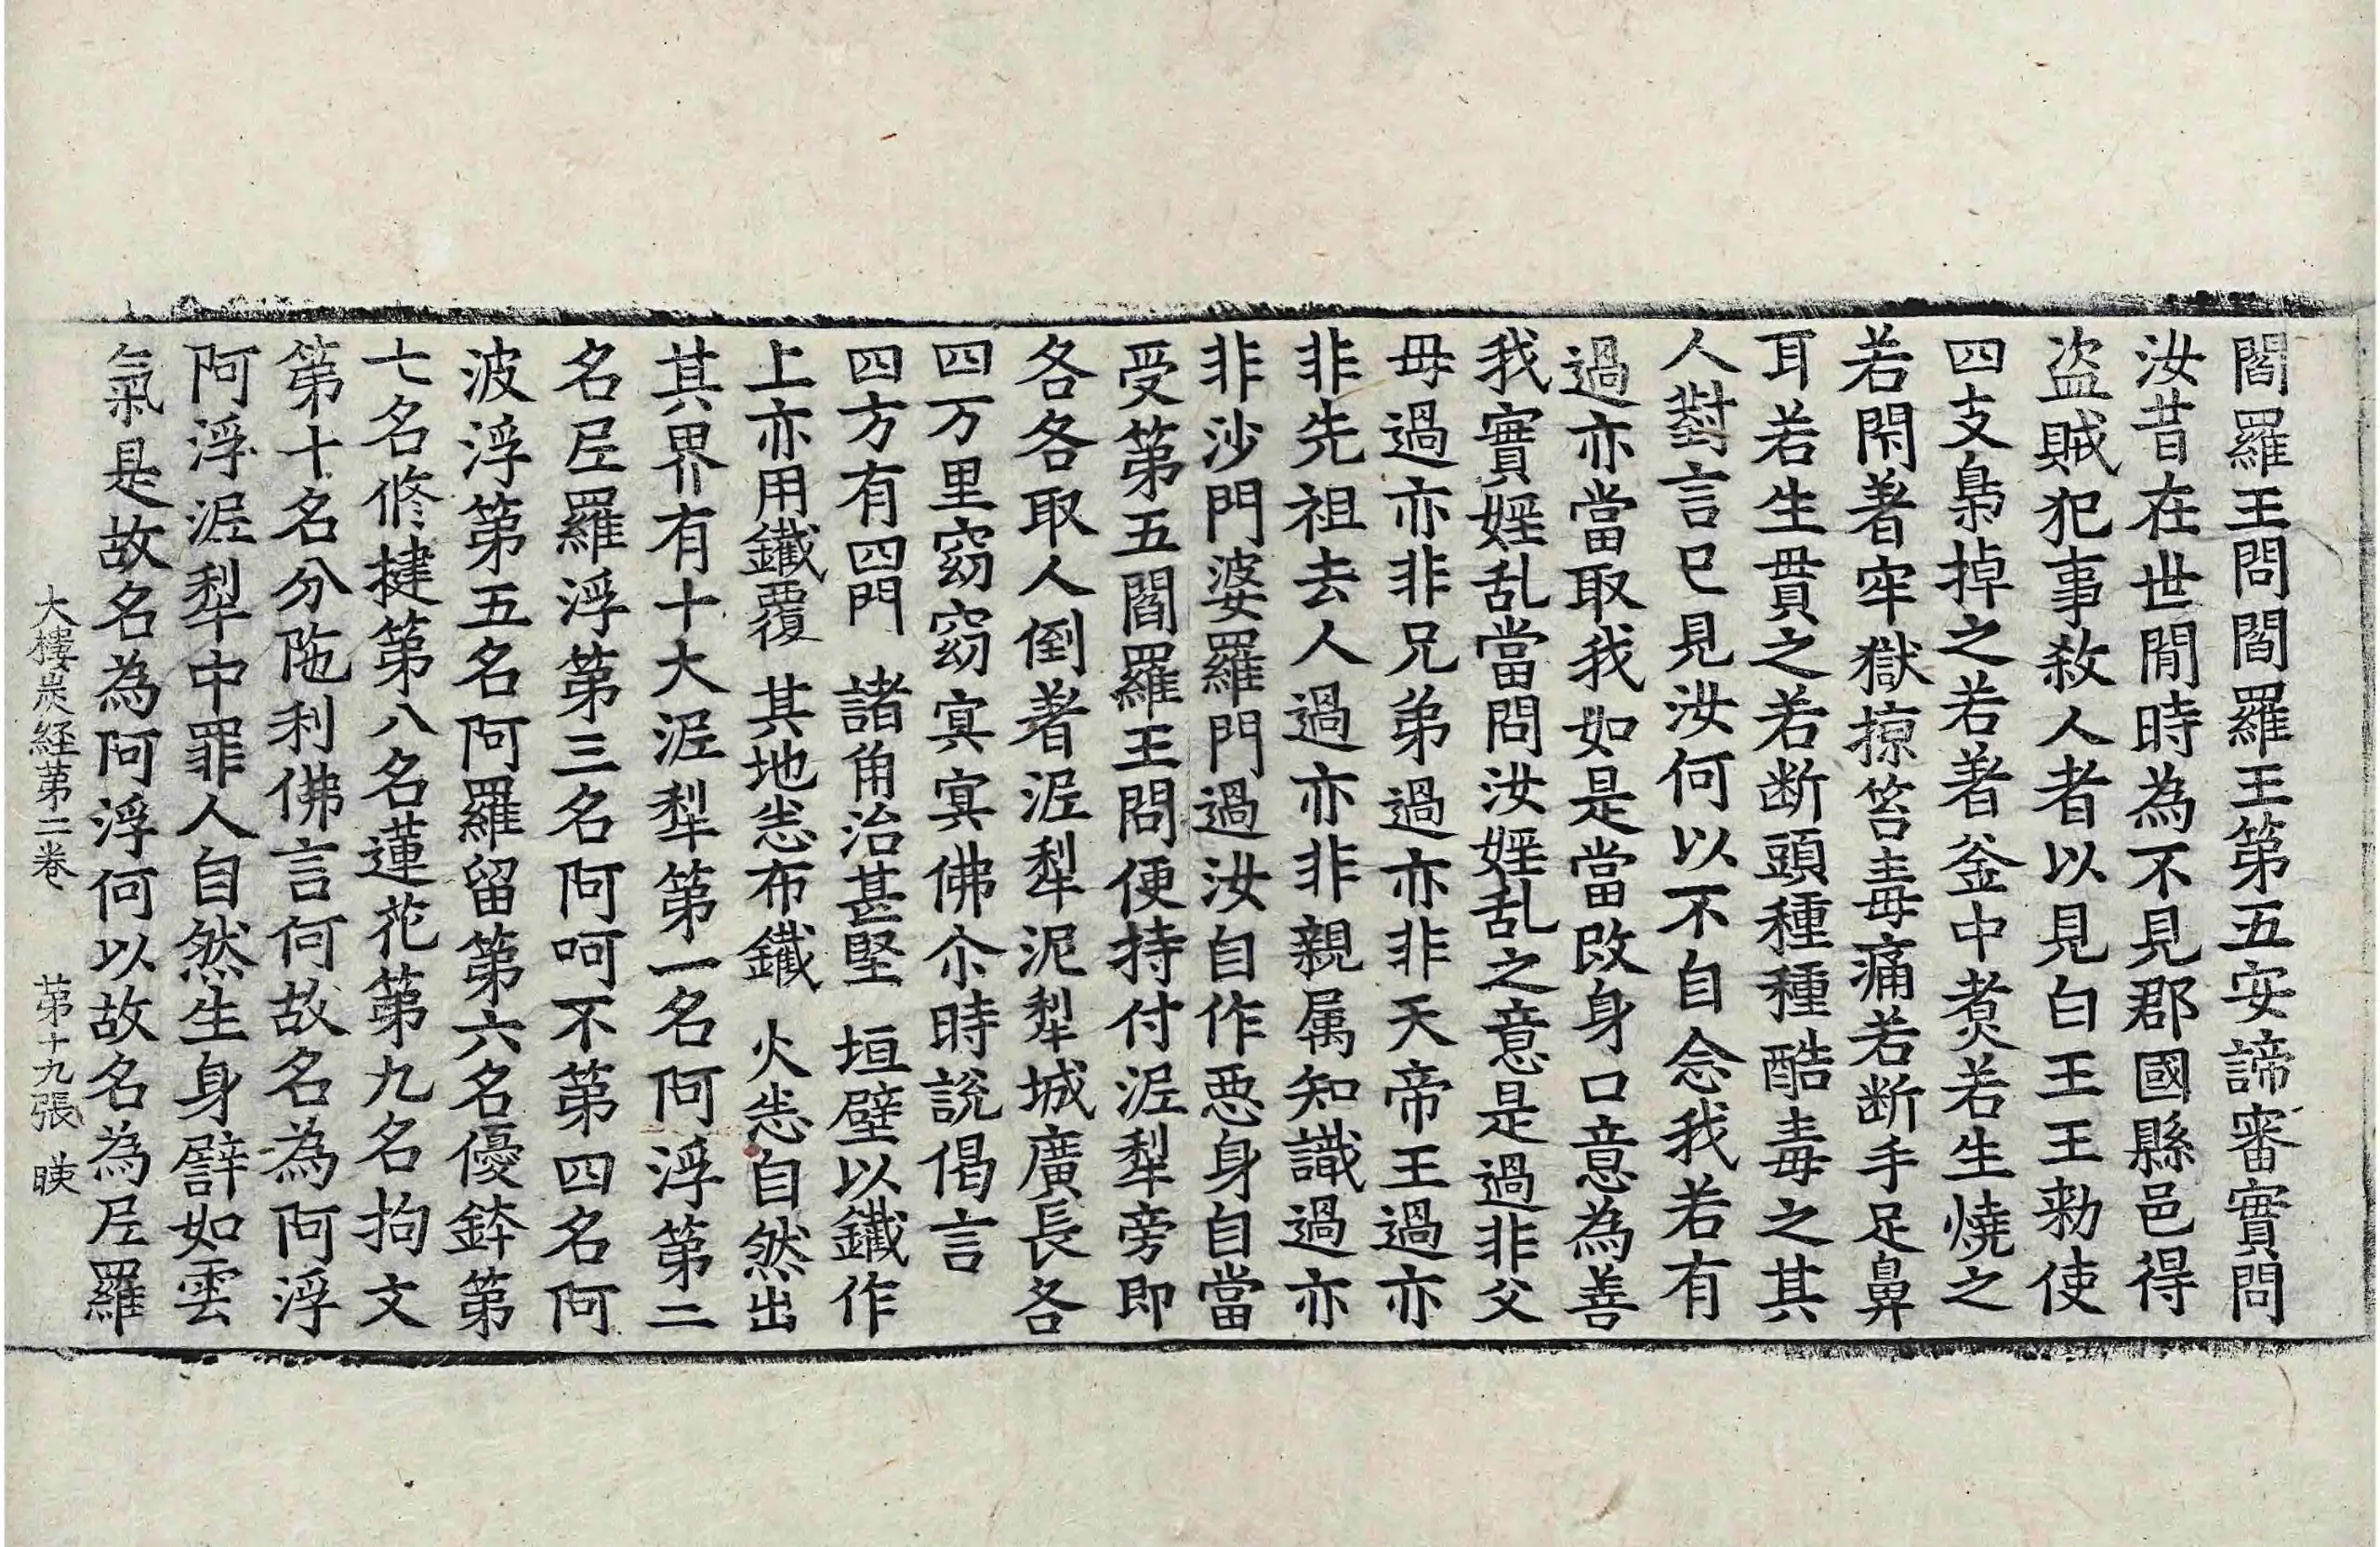 閻羅王問閻羅王第五安諦審實問
汝昔在世閒時為不見郡國縣邑得
盜賊犯事敎人者以見白王王勑使
四支梟掉之若著釜中煑若生燒之
若閉著牢獄掠笞毒痛若断手足鼻
耳若生貫之若断頭種種酷毒之其
人對言已見汝何以不自念我若有
過亦當取我如是當改身口意為善
我實婬乱當問汝婬乱之意是過非父
母過亦非兄弟過亦非天帝王過亦
非先祖去人過亦非親属知識過亦
非沙門婆羅門過汝自作惡身自當
受第五閻羅王問便持付泥犁旁即
各各取人倒著泥犁泥犁城廣長各
四万里窈窈冥冥佛尒時說偈言
四方有四門　諸角治甚堅　垣壁以鐵作
上亦用鐵覆　其地悉布鐵　火悉自然出
其界有十大泥犁第一名阿浮第二
名尼羅浮第三名阿呵不第四名阿
波浮第五名阿羅留第六名優鉢第
七名修揵第八名蓮花第九名拘文
第十名分陁利佛言何故名為阿浮
阿浮泥犁中罪人自然生身譬如雲
氣是故名為阿浮何以故名為尼羅
大樓炭経第二卷　第十九張　㑹